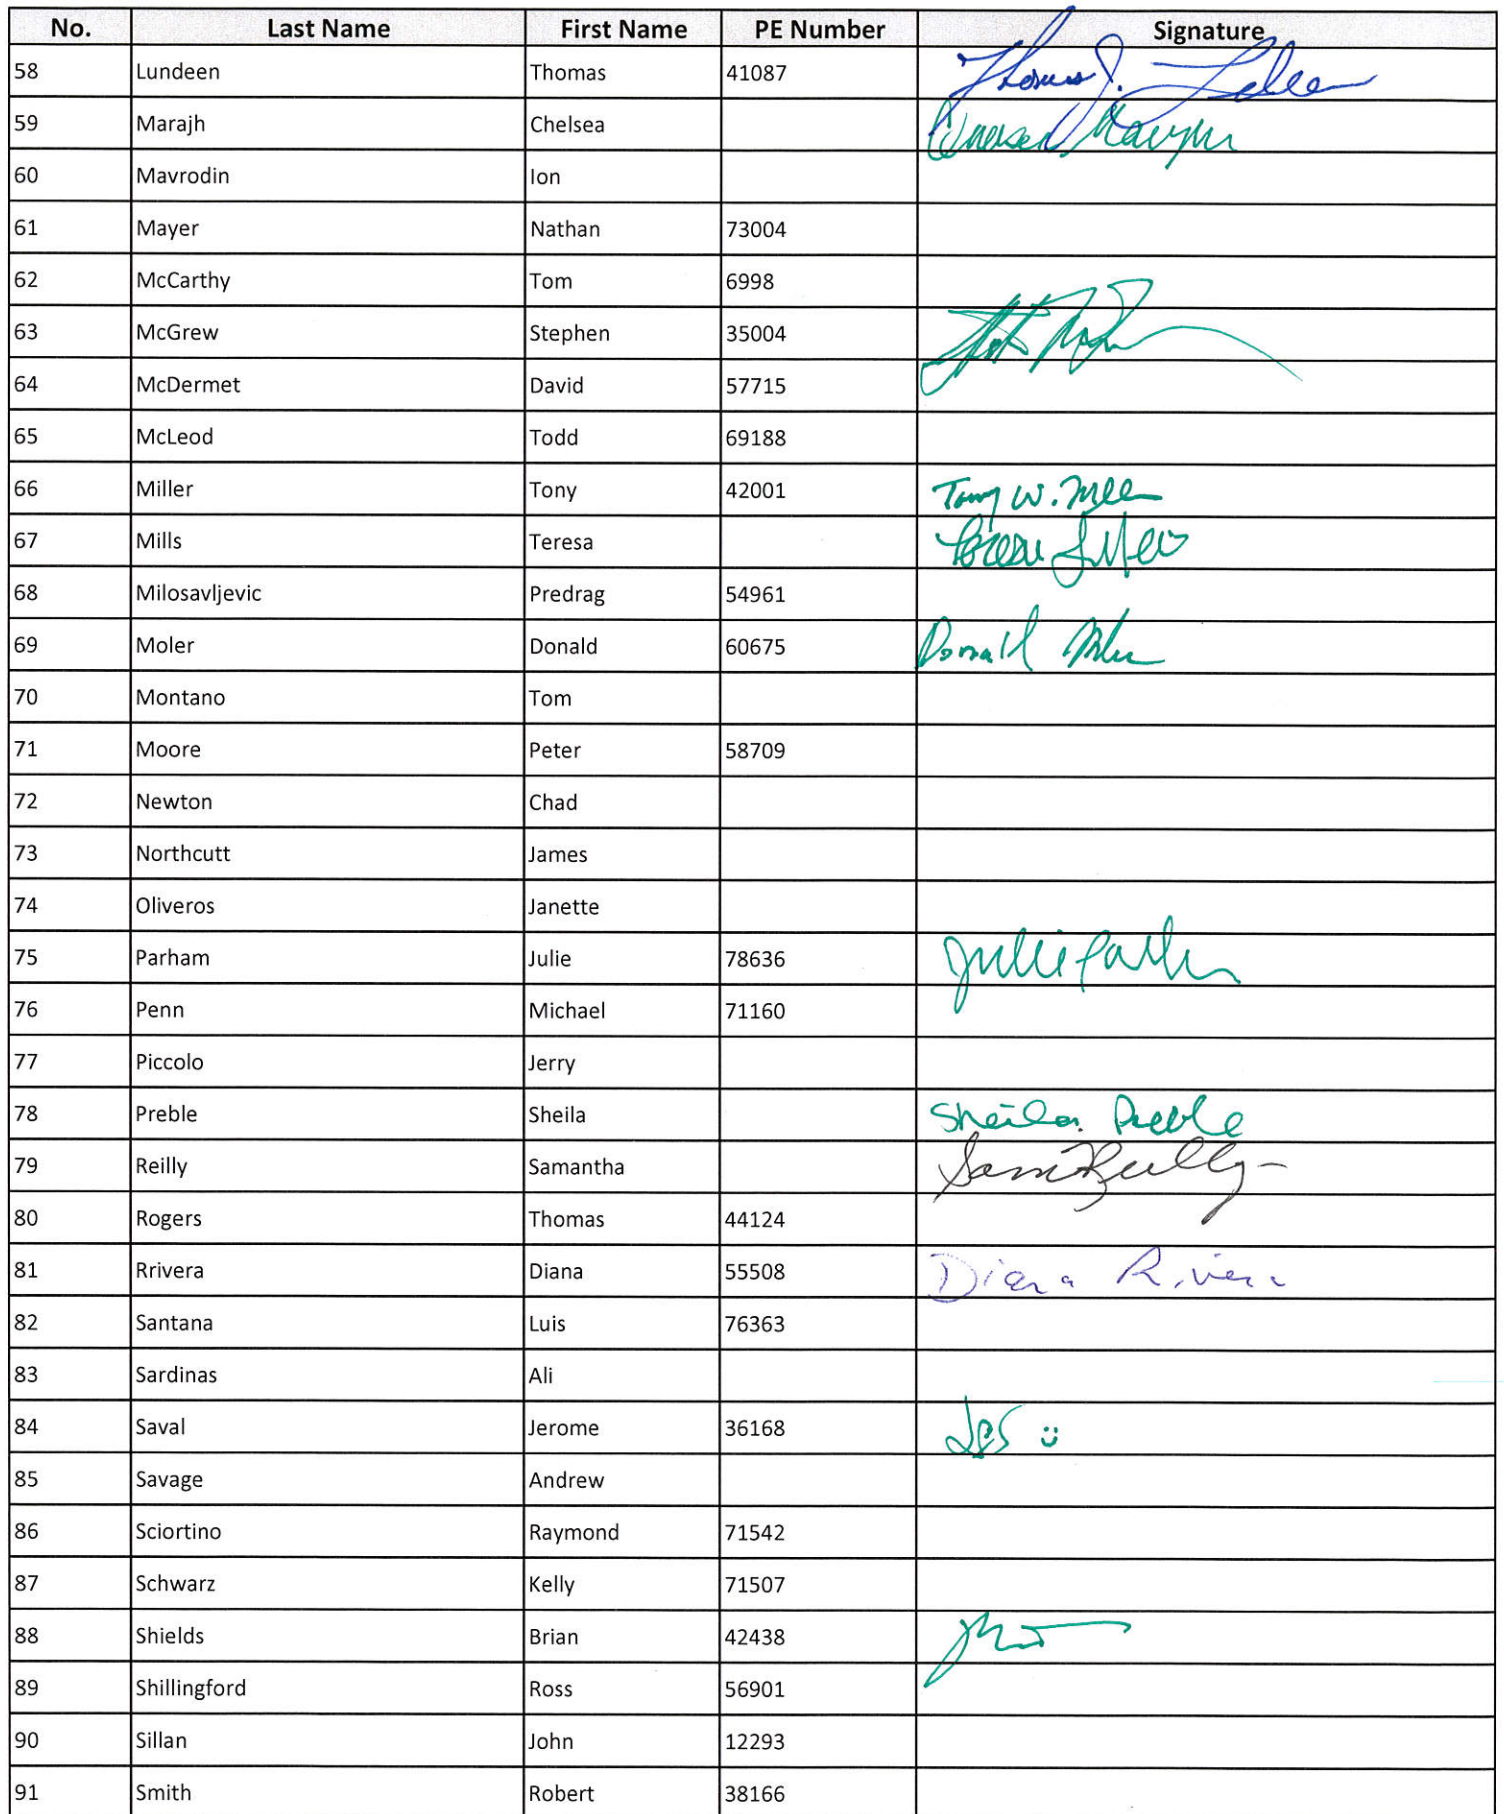 No. Last Name First Name PE Number Signature
58 Lundeen Thomas 41087 Thomas J.
59 Marajh Chelsea
60 Mavrodin Ion
61 Mayer Nathan 73004
62 McCarthy Tom 6998
63 McGrew Stephen 35004
64 McDermet David 57715
65 McLeod Todd 69188
66 Miller Tony 42001 Tony W.
67 Mills Teresa
68 Milosavljevic Predrag 54961
69 Moler Donald 60675 Donald
70 Montano Tom
71 Moore Peter 58709
72 Newton Chad
73 Northcutt James
74 Oliveros Janette
75 Parham Julie 78636 Julie
76 Penn Michael 71160
77 Piccolo Jerry
78 Preble Sheila Sheila Preble
79 Reilly Samantha Sam Reilly
80 Rogers Thomas 44124
81 Rrivera Diana 55508 Diana Rivera
82 Santana Luis 76363
83 Sardinas Ali
84 Saval Jerome 36168
85 Savage Andrew
86 Sciortino Raymond 71542
87 Schwarz Kelly 71507
88 Shields Brian 42438
89 Shillingford Ross 56901
90 Sillan John 12293
91 Smith Robert 38166